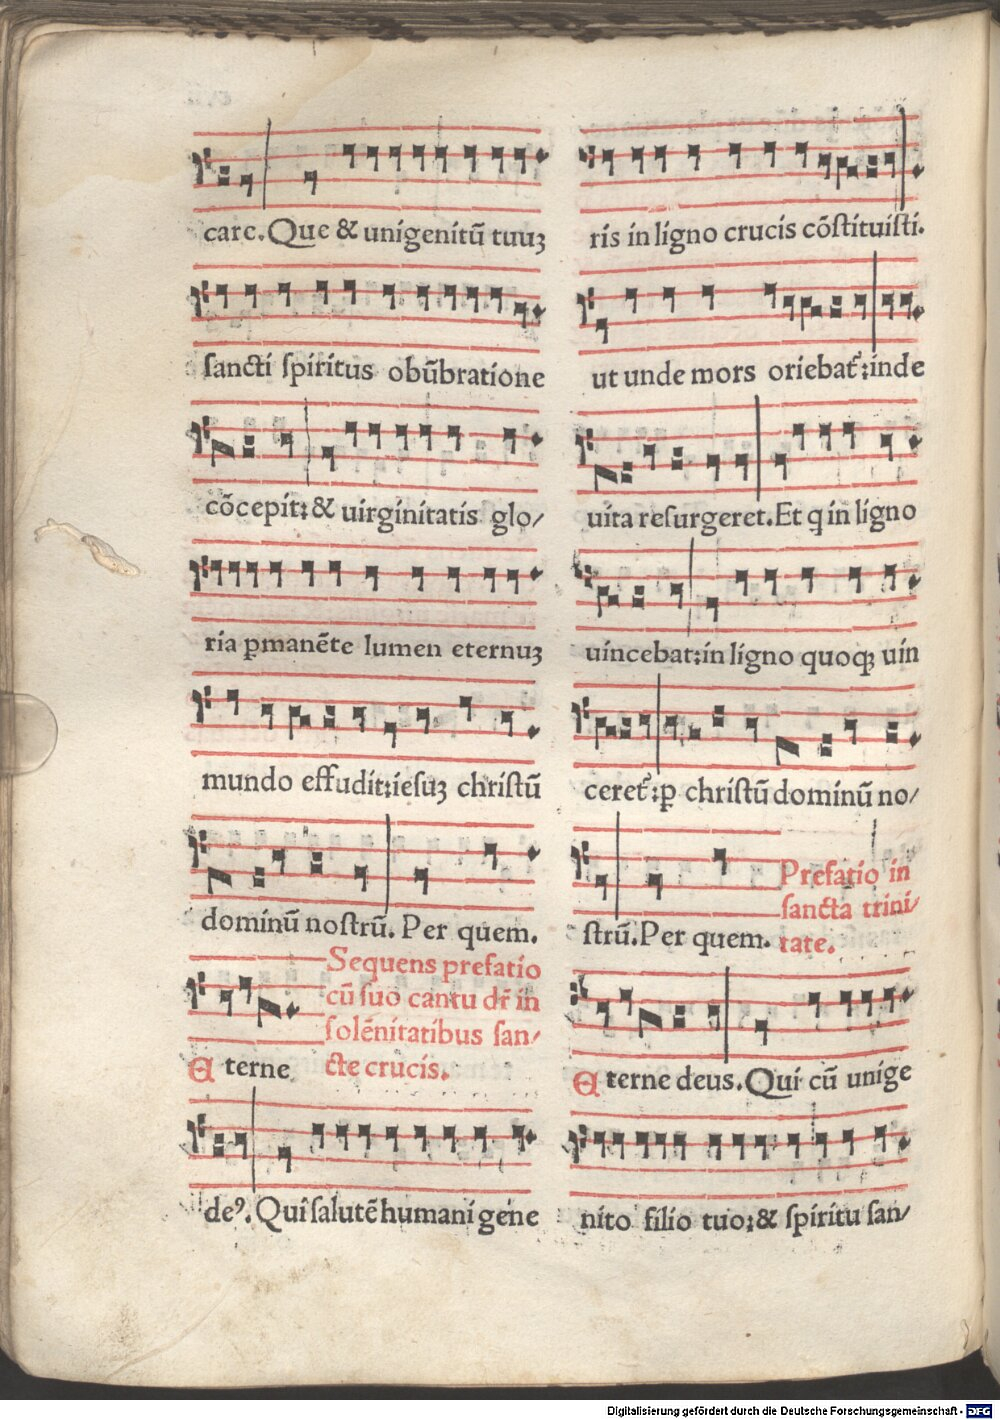 care. Que & unigenitū tuuʒ
sancti spiritus obūbratione
cōcepit: & uirginitatis glo/
ria ꝑmanēte lumen eternuʒ
mundo effudit: iesuʒ christū
dominū nostrū. Per quem.
Sequens prefatio
cū suo cantu dr̄ in
solēnitatibus san/
cte crucis.
Eterne
deꝰ. Qui salutē humani gene
ris in ligno crucis cōstituisti.
ut unde mors oriebat᷑: inde
uita resurgeret. Et q in ligno
uincebat: in ligno quoqꝫ uin
ceret᷑: ꝑ christū dominū no/
strū. Per quem.
Prefatio in
sancta trini/
tate.
Eterne deus. Qui cū unige
nito filio tuo: & spiritu san/
Digitalisierung gefördert durch die Deutsche Forschungsgemeinschaft - DFG